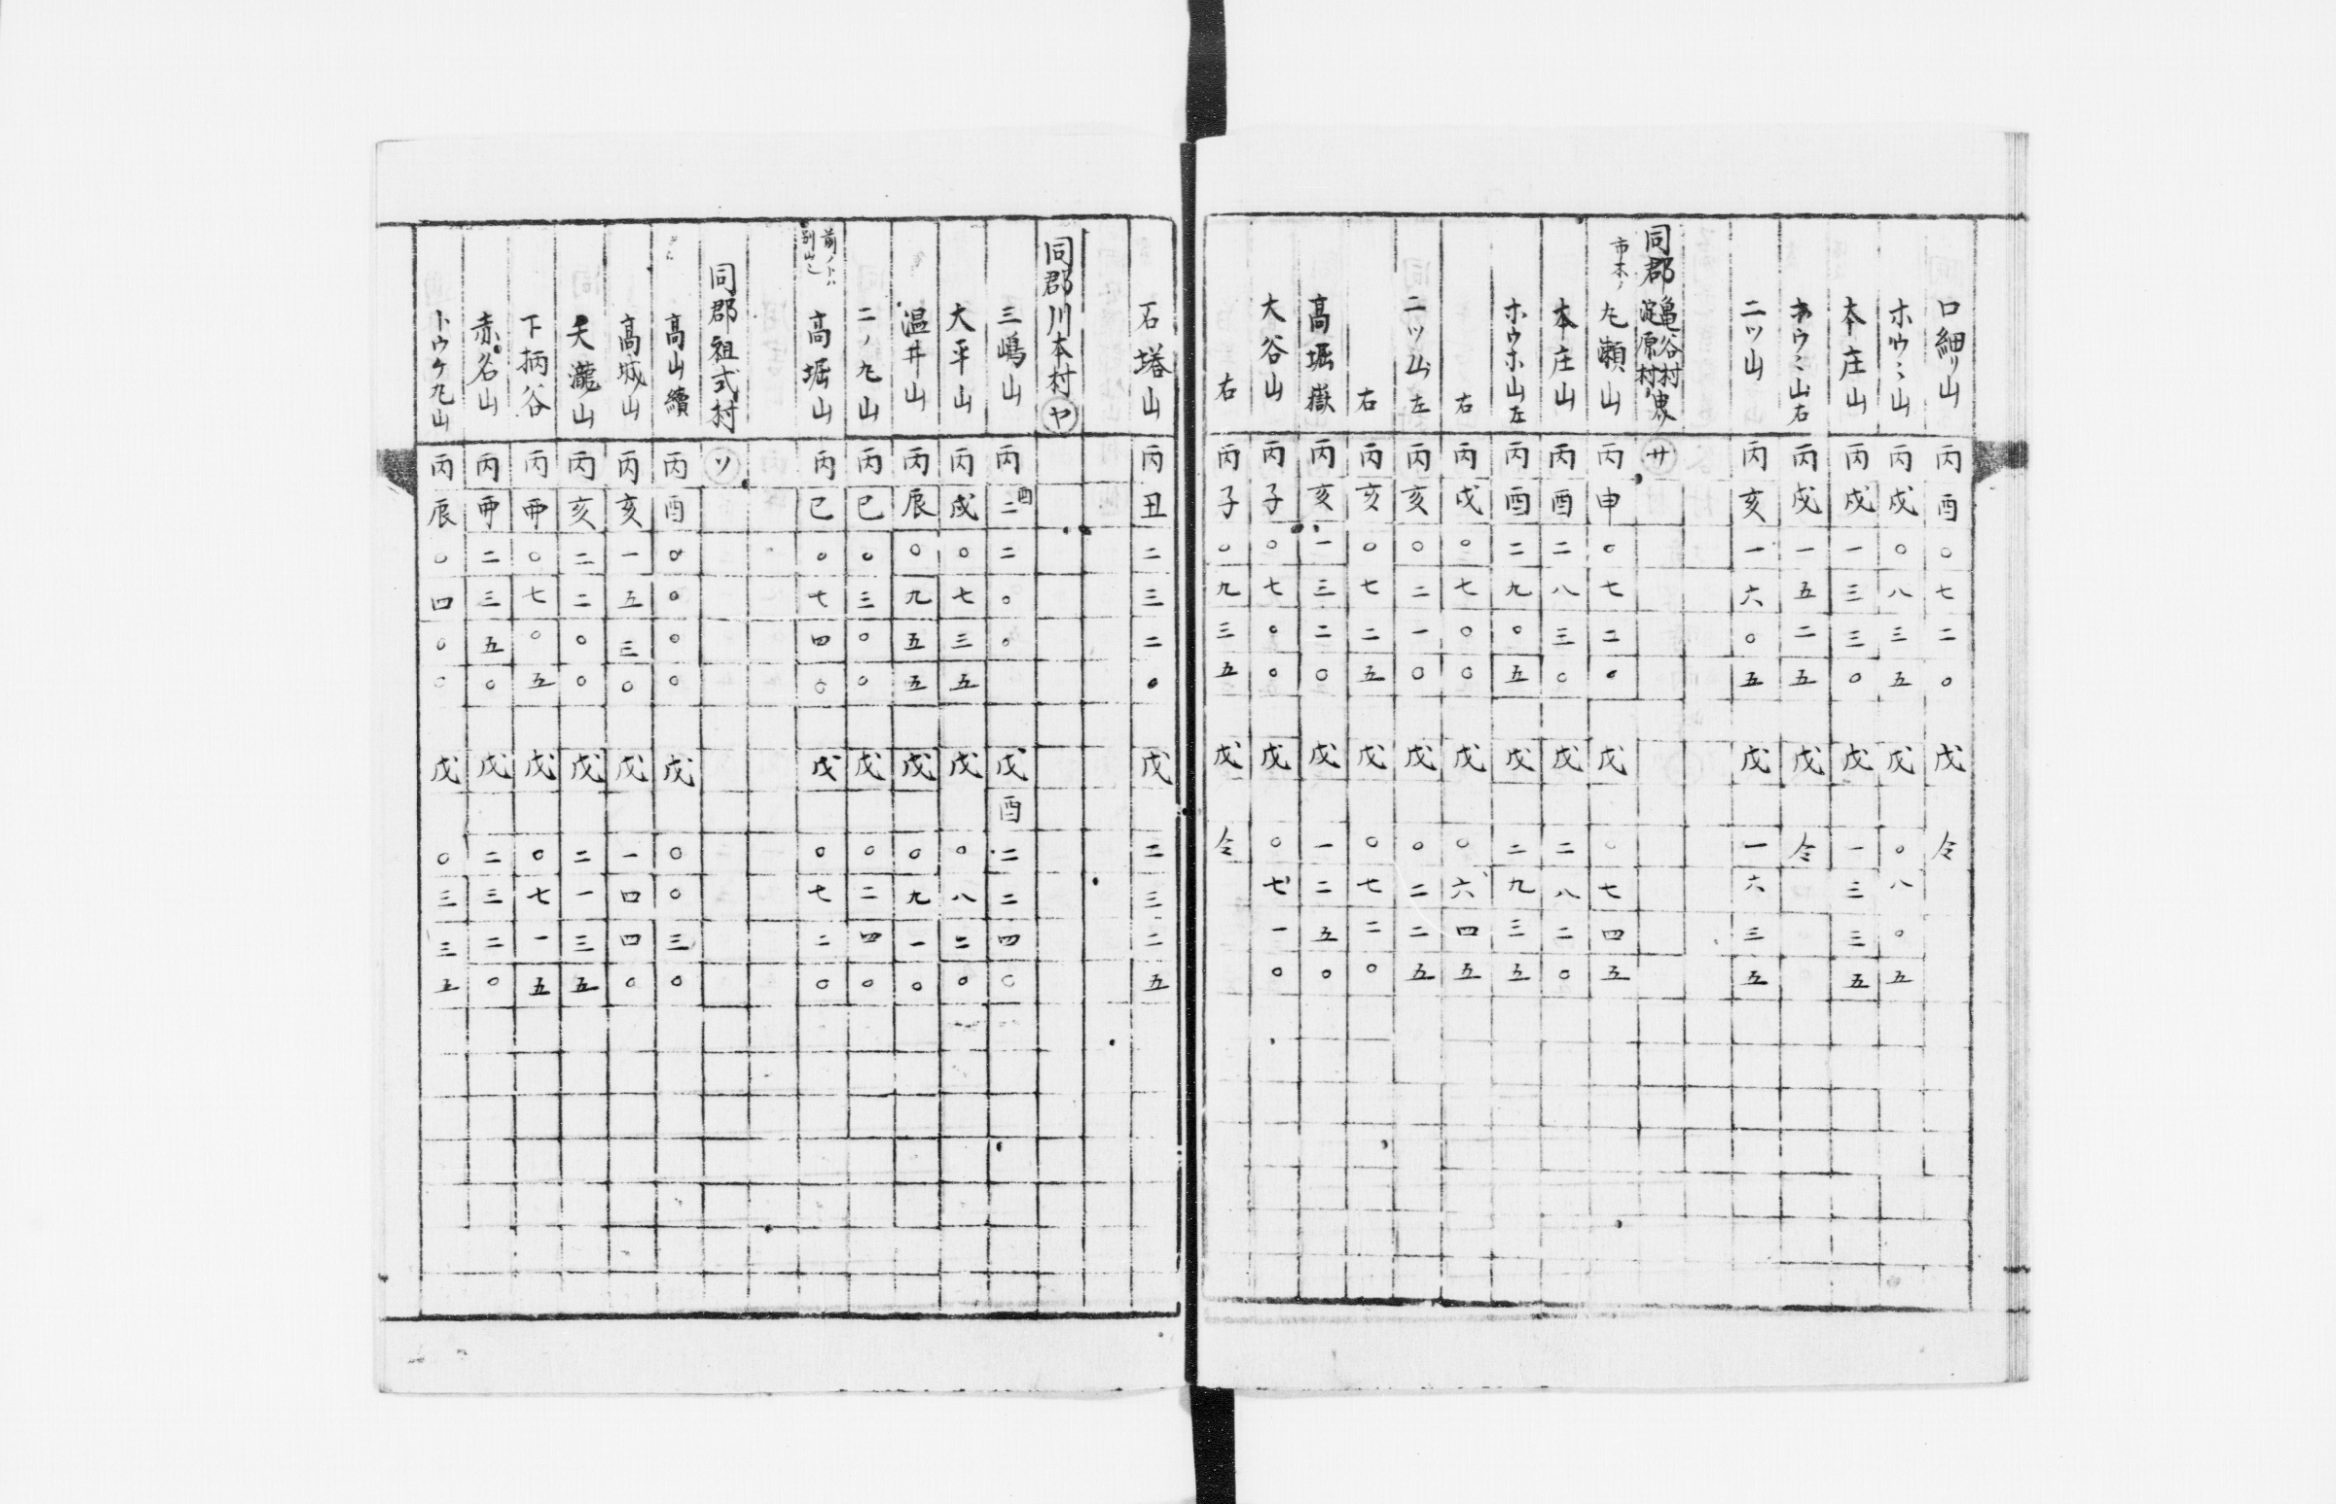 口細リ山 丙酉〇七二〇 戊 仝
ホウミ山 丙戌〇八三五 戊〇八〇五
本庄山 丙戌一三三〇 戊一三三五
ホウミ山右 丙戌一五二五 戊 仝
二ツ山 丙亥一六〇五 戊一六三五
同郡亀谷村淀原村界 サ
市木ノ丸瀬山 丙申〇七二〇 戊〇七四五
本庄山 丙酉二八三〇 戊二八二〇
ホウホ山左 丙酉二九〇五 戊二九三五
右 丙戌〇七〇〇 戊〇六四五
二ツ山左 丙亥〇二一〇 戊〇二二五
右 丙亥〇七二五 戊〇七二〇
高堀嶽 丙亥一三二〇 戊一二五〇
大谷山 丙子〇七〇〇 戊〇七一〇
右 丙子〇九三五 戊 仝
石塔山 丙丑二三二〇 戊二三二五
同郡川本村 ヤ
三嶋山 丙酉二二〇〇 戊酉二二四〇
大平山 丙戌〇七三五 戊〇八二〇
温井山 丙辰〇九五五 戊〇九一〇
二ノ丸山 丙巳〇三〇〇 戊〇二四〇
前ノトハ別山也 高堀山 丙巳〇七四〇 戊〇七二〇
同郡祖式村 ソ
高山續 丙酉〇〇〇〇 戊〇〇三〇
高城山 丙亥一五三〇 戊一四四〇
天瀧山 丙亥二二〇〇 戊二一三五
下柄谷 丙卯〇七〇五 戊〇七一五
赤名山 丙卯二三五〇 戊二三二〇
トウケ丸山 丙辰〇四〇〇 戊〇三三五